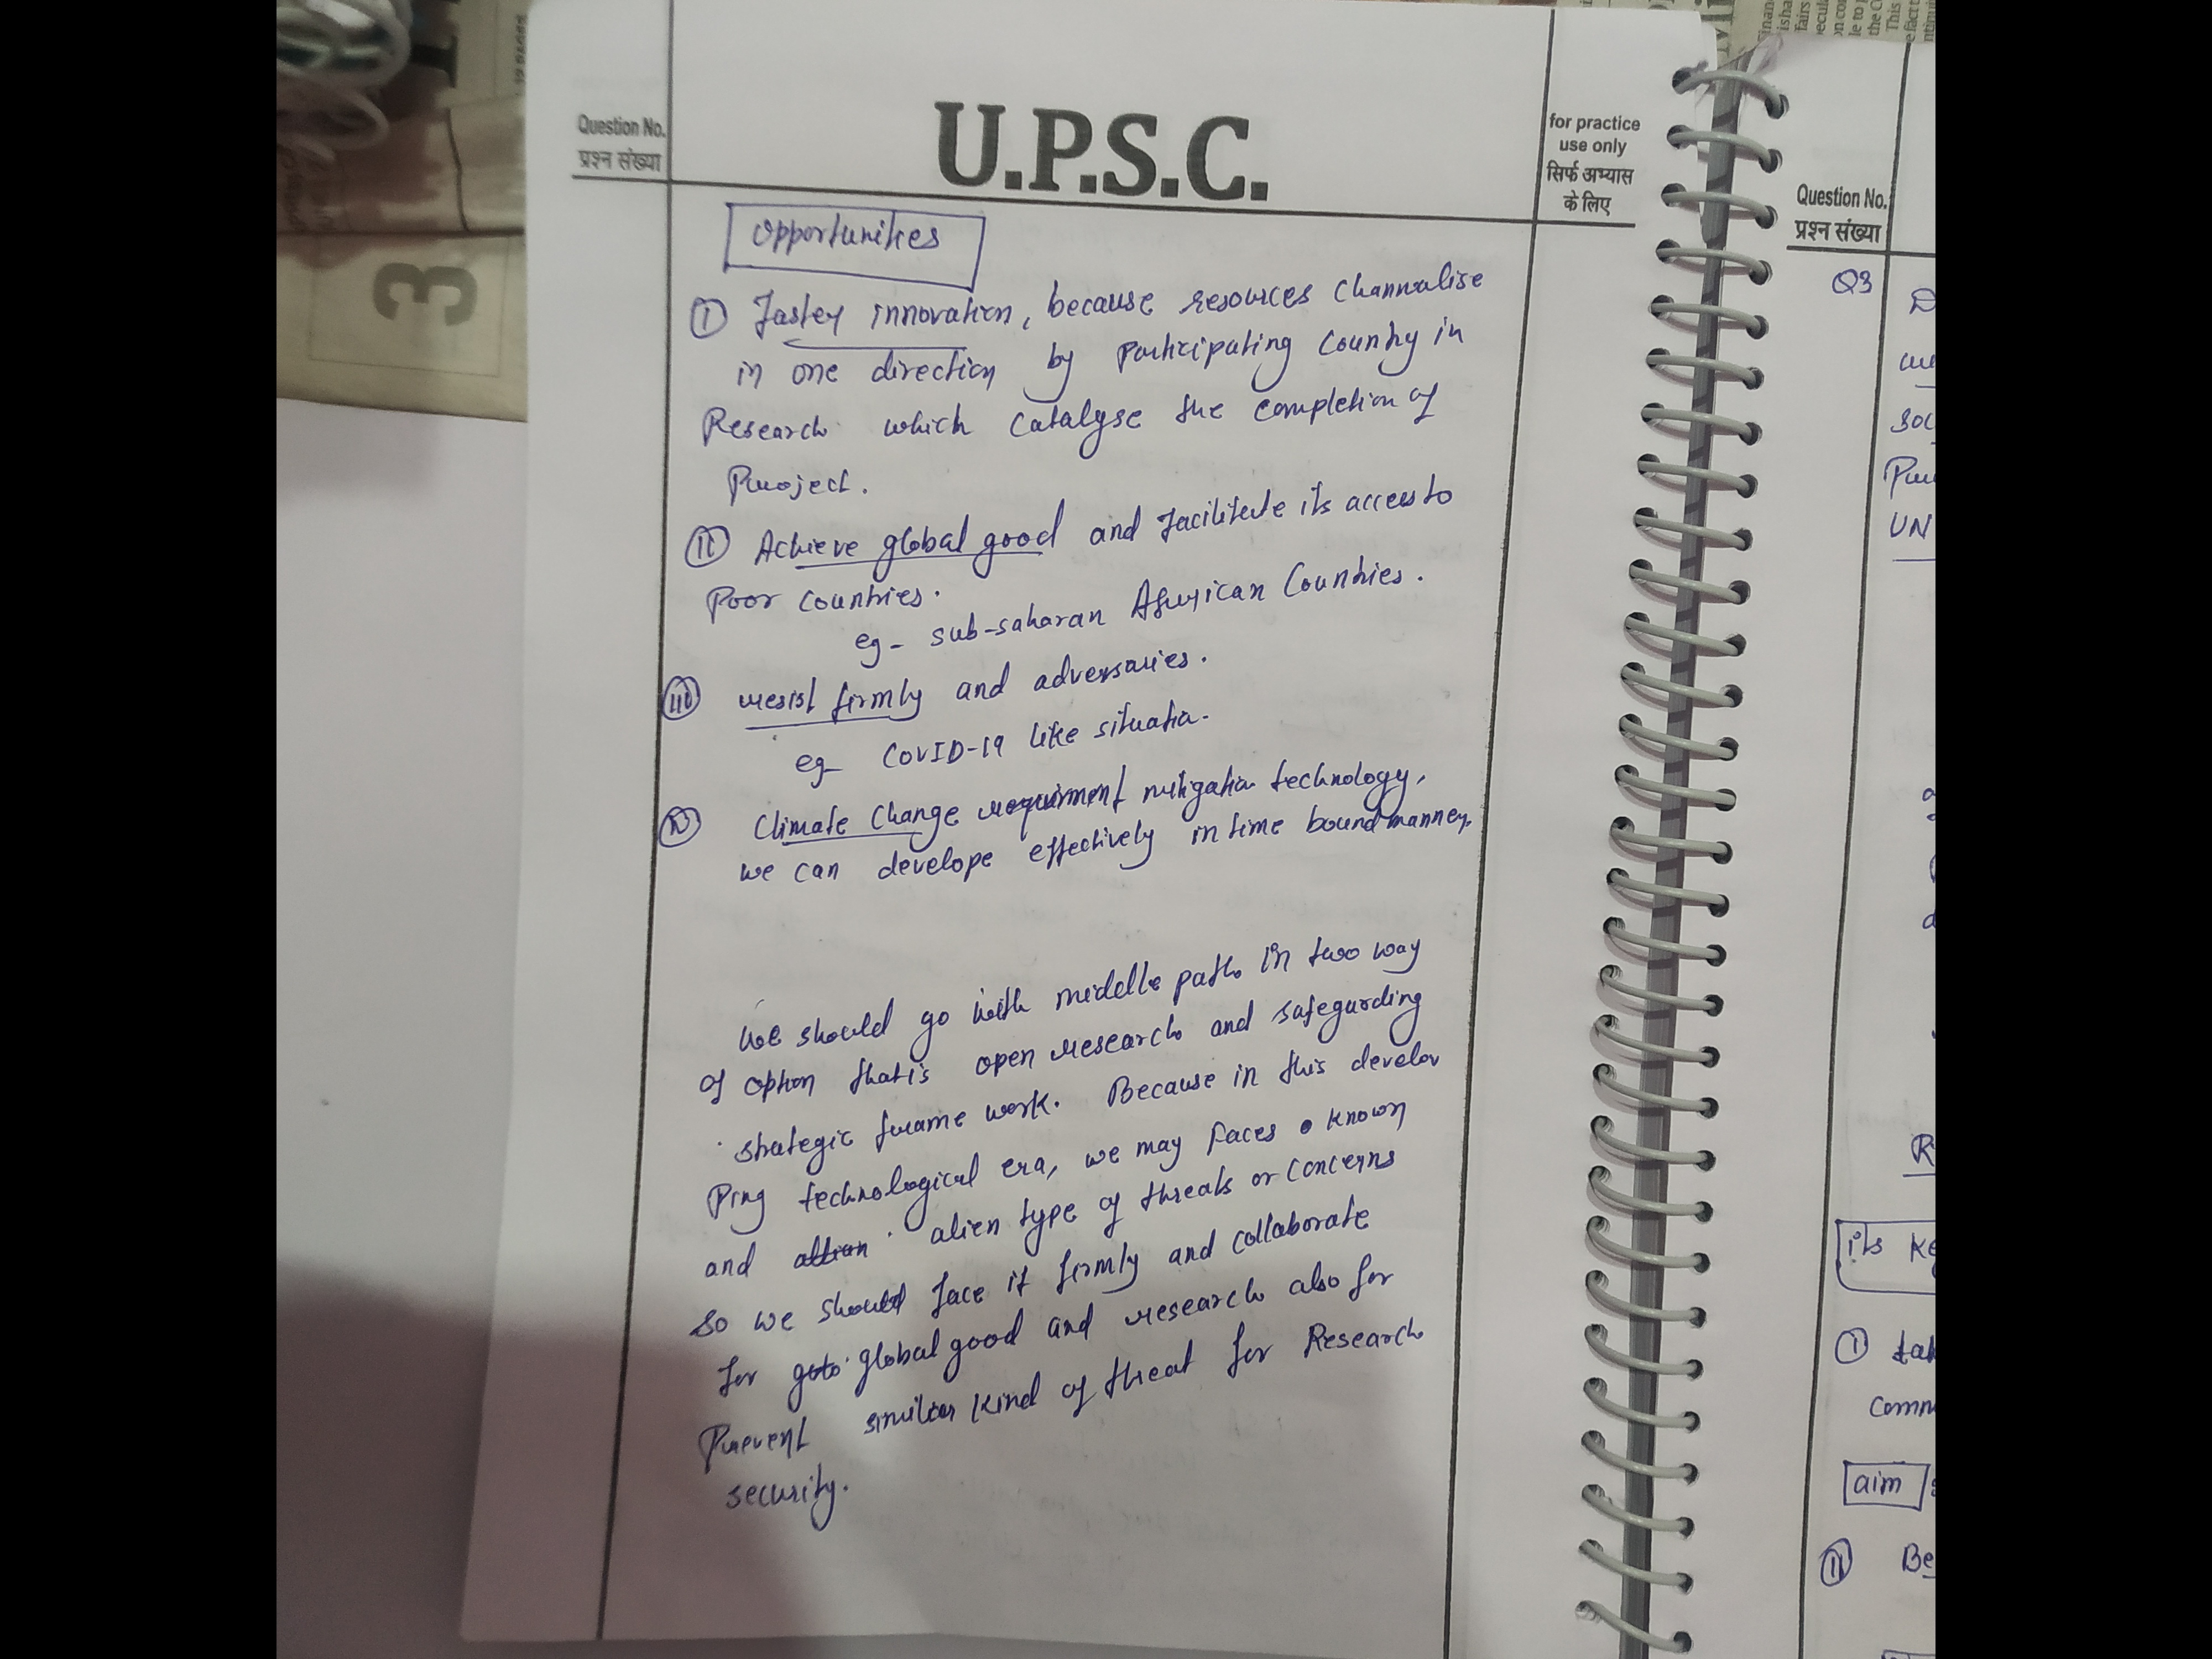 Question No.
प्रश्न संख्या
U.P.S.C.
for practice
use only
सिर्फ अभ्यास
के लिए
Opportunities
I Faster innovation, because resources channalise
in one direction by participating country in
Research which catalyse the completion of
Project.
II Achieve global good and facilitate its access to
Poor countries.
eg- sub-saharan African Countries.
III resist firmly and adversaries.
eg- COVID-19 like situatia.
IV Climate Change requirment mitigatia technology,
we can develope effectively in time bound manner.
We should go with middle path in two way
of option that is open research and safegarding
strategic frame work. Because in this develo
ping technological era, we may faces known
and alien type of threats or concerns
so we should face it firmly and collaborate
for global good and research also for
Prevent similar kind of threat for Research
security.
3
Question No.
प्रश्न संख्या
Q3
UN
its Ke
I
Comm
aim
II Be